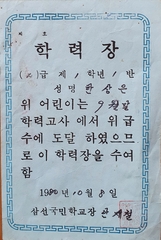 제 호
학력장
(2)급 제, 학년, 반
성명 한상은
위 어린이는 9월말
학력고사 에서 위 급
수에 도달 하였으므
로 이 학력장을 수여
함
1980년 10월 8일
삼선국민학교장